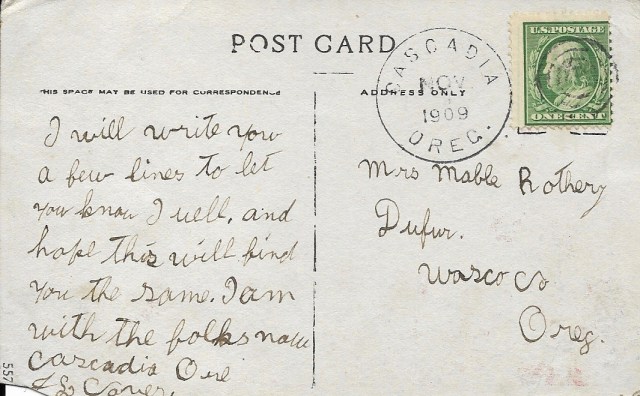 POST CARD
THIS SPACE MAY BE USED FOR CORRESPONDENCE
ADDRESS ONLY
CASCADIA
NOV
1909
OREG.
U.S. POSTAGE
ONE CENT
I will write you
a few lines to let
you know I well, and
hope this will find
you the same. I am
with the folks now
Cascadia Ore
Mrs Mable Rothery
Dufur.
Wasco Co
Oreg.
557